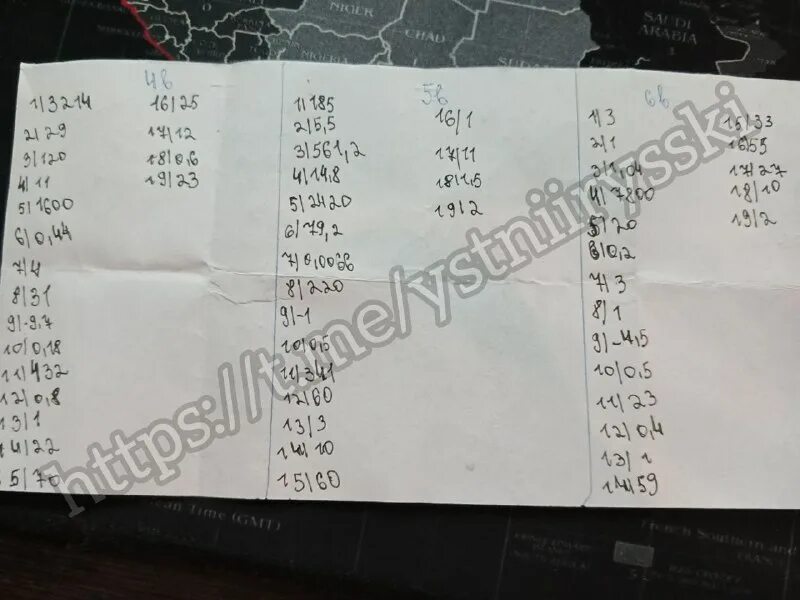 4в
1/3214
2/29
3/120
4/11
5/1600
6/0,44
7/4
8/31
9/-9,7
10/0,18
11/432
12/0,8
13/1
14/22
5/70
16/25
17/12
18/0,6
19/23
5в
1/185
2/5,5
3/561,2
4/14,8
5/2420
6/79,2
7/0,0036
8/220
9/-1
10/0,5
11/341
12/60
13/3
14/10
15/60
16/1
17/11
18/1,5
19/2
6в
1/3
2/1
3/1,04
4/7800
5/20
6/0,2
7/3
8/1
9/-4,5
10/0,5
11/23
12/0,4
13/1
14/59
15/33
16/55
17/27
18/10
19/2
https://t.me/ystniinysski
NIGER
CHAD
SUDAN
SAUDI
ARABIA
NIGERIA
ean Time (GMT)
French Southern and